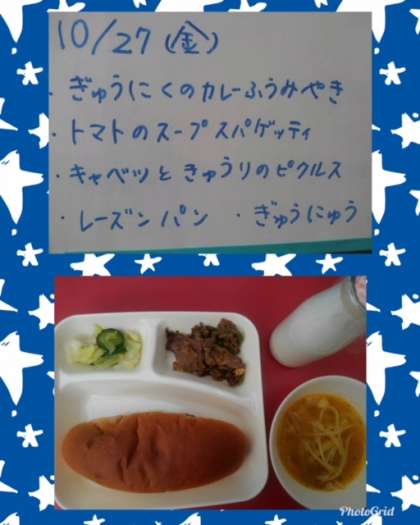 10/27(金)
・ぎゅうにくのカレーふうみやき
・トマトのスープスパゲッティ
・キャベツときゅうりのピクルス
・レーズンパン ・ぎゅうにゅう
PhotoGrid